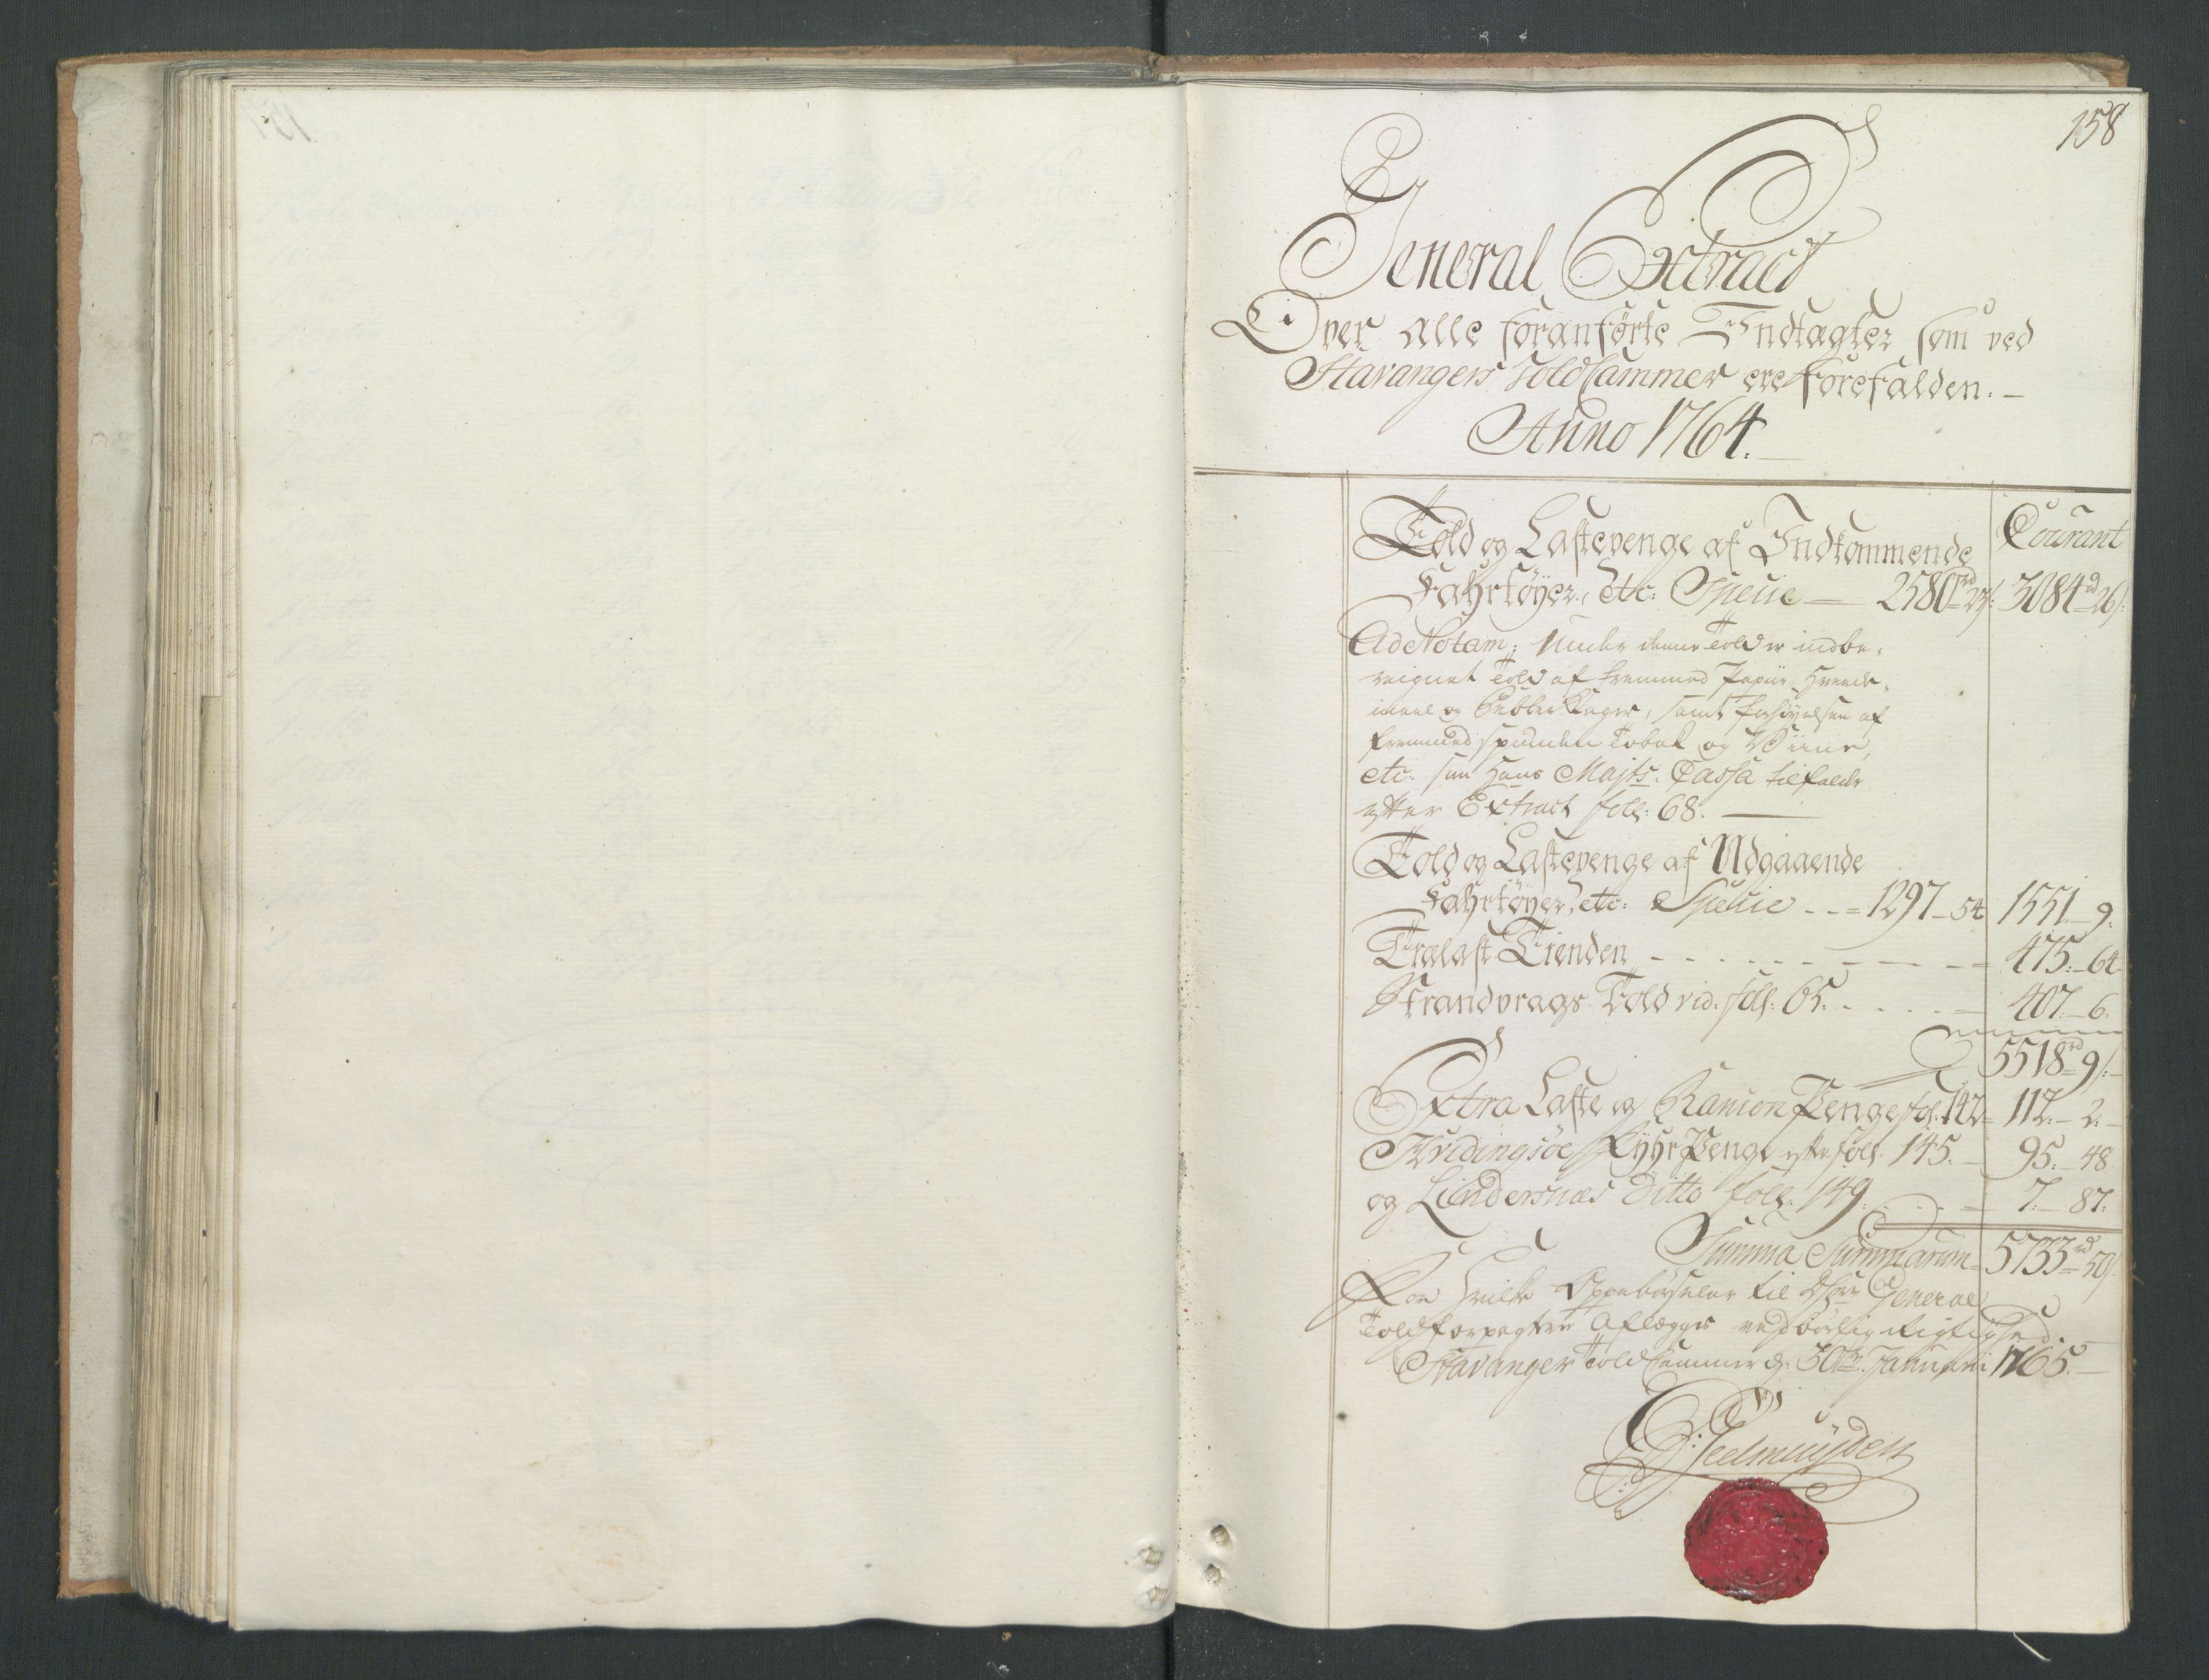 158
General Extract
Over alle foranførte Indtagter som ved
Stavangers Told Cammer ere forefalden. –
Anno 1764.
Courant
Told og Lastepenge af Indkommende
Fahrtøyer, etc: Specie — 2580rd 27s: 3084rd 26s:
Ad Notam: Under denne Told er indbe-
reignet Told af fremmed Papiir, Hvede-
meel og Kager, samt forhøyelsen af
fremmed spunden Tobak og Viine,
etc: som Hans Majts: Cassa tilfalder
efter Extract foll: 68. —
Told og Lastepenge af Udgaaende
Fahrtøyer, etc: Specie - - = 1297 – 54 1551 – 9.
Trælast Tienden - - - - - 475. – 64
Strandvrags Told vid: foll: 65. - - - - 407. – 6.
5518rd 9s: –
Extra Laste og Rancion Penge fol: 142 = 112. – 2. –
Hvidingsøe Fyhr Penge efter foll: 145. – 95. – 48
og Lindersnæs Ditto foll: 149. - - - 7. – 87.
Summa Summarum = 5733rd 50s.
For hvilke Oppebørseler til Herr General
Toldforpagtere Aflægges ved børlig Rigtighed.
Stavanger Told Cammer d: 30te: Januarii 1765. –
Geelmuÿden